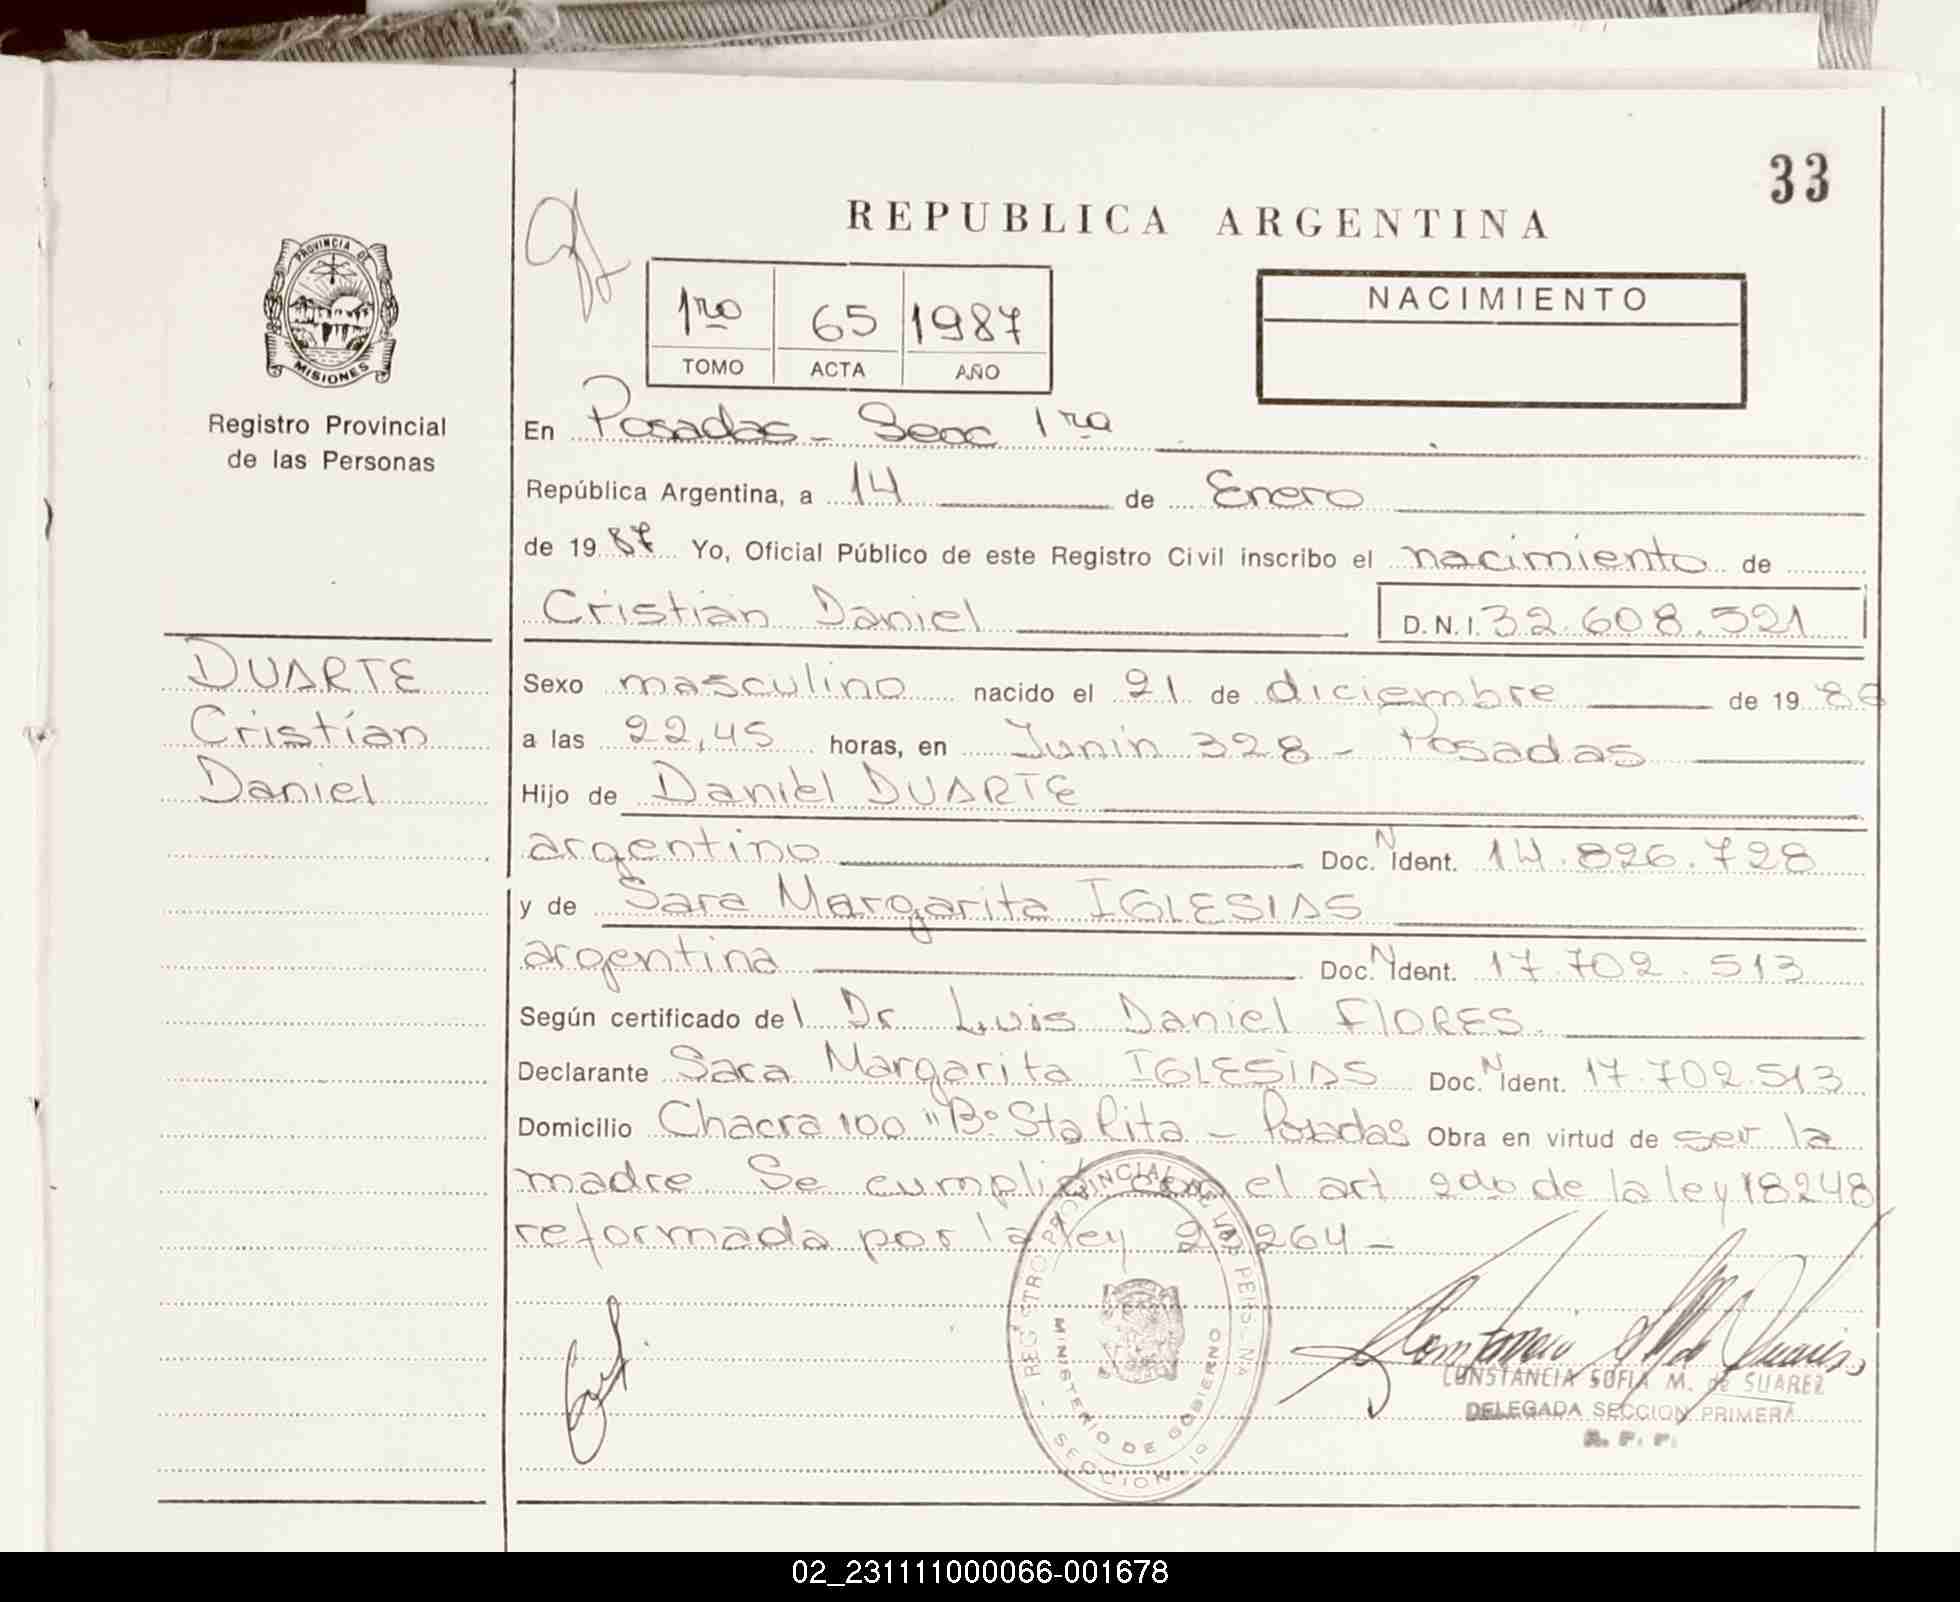 33
REPUBLICA ARGENTINA
PROVINCIA DE
MISIONES
Registro Provincial
de las Personas
1ro 65 1987
TOMO ACTA AÑO
NACIMIENTO
En Posadas - Secc 1ra
República Argentina, a 14 de Enero
de 1987 Yo, Oficial Público de este Registro Civil inscribo el nacimiento de
Cristian Daniel D.N.I. 32.608.521
DUARTE
Cristían
Daniel
Sexo masculino nacido el 21 de diciembre de 1986
a las 22,45 horas, en Junin 328 - Posadas
Hijo de Daniel DUARTE
argentino Doc. N Ident. 14.826.728
y de Sara Margarita IGLESIAS
argentina Doc. N Ident. 17.702.513
Según certificado del Dr Luis Daniel FlORES
Declarante Sara Margarita IGLESIAS Doc. N Ident. 17.702.513
Domicilio Chacra 100 "Bº Sta Rita - Posadas Obra en virtud de ser la
madre Se cumplió con el art 2do de la ley 18248
reformada por la ley 23264 -
REGISTRO PROVINCIAL DE LAS PERSONAS
MINISTERIO DE GOBIERNO
SECCION 1º
CONSTANCIA SOFIA M. de SUAREZ
DELEGADA SECCION PRIMERA
R. P. P.
02_231111000066-001678